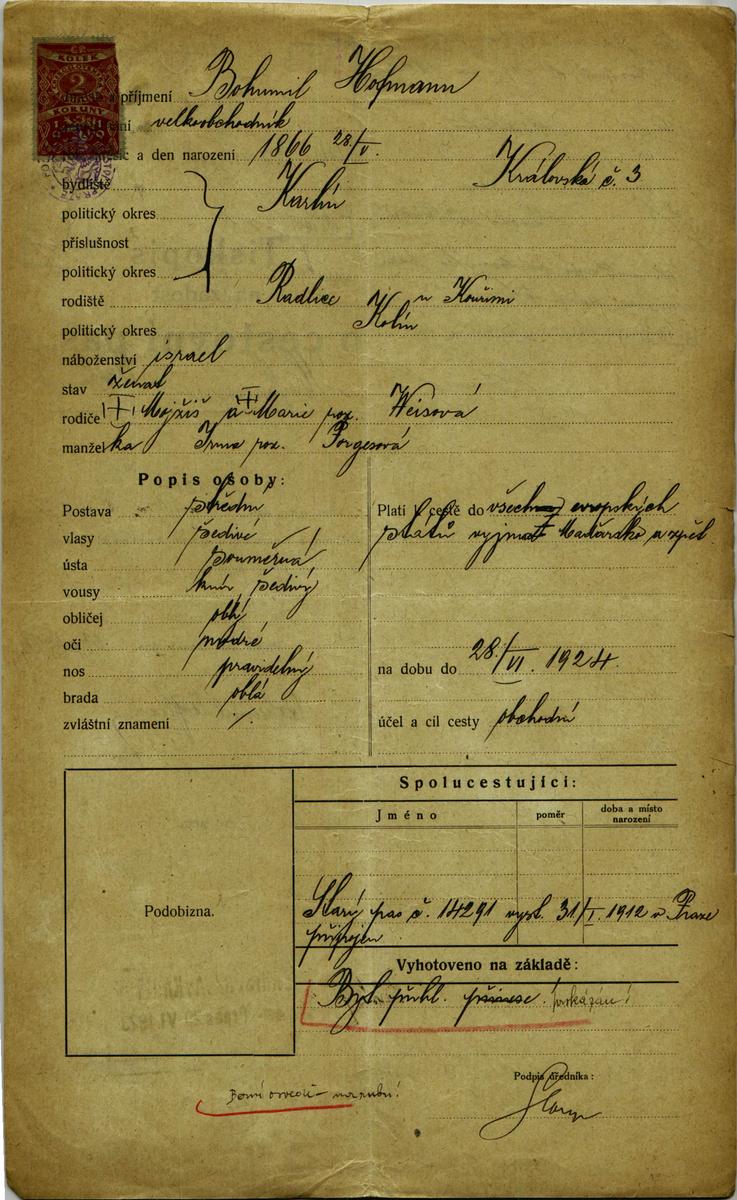 Č.P.
KOLEK
2
KORUNY
a příjmení Bohumil Hofmann
velkoobchodník
a den narození 1866 28/V.
bydliště Karlín Královská č. 3
politický okres
příslušnost
politický okres
rodiště Radlice u Kouřimi
politický okres Kolín
náboženství israel
stav ženat
rodiče Mojžíš a Marie roz. Weisová
manželka Irma roz. Porgesová
Popis osoby:
Postava střední
vlasy šedivé
ústa souměrná
vousy knír šedivý
obličej oblý
oči modré
nos pravidelný
brada oblá
zvláštní znamení ./.
Platí k cestě do všech evropských
států vyjma Maďarsko a zpět
na dobu do 28/VI. 1924.
účel a cíl cesty obchodní
Spolucestující:
Jméno
poměr
doba a místo
narození
Starý pas č. 14291 vyst. 31/I. 1912 v Praze
připojen
Podobizna.
Vyhotoveno na základě:
Byt. přihl. prokázán!
Podpis úředníka: